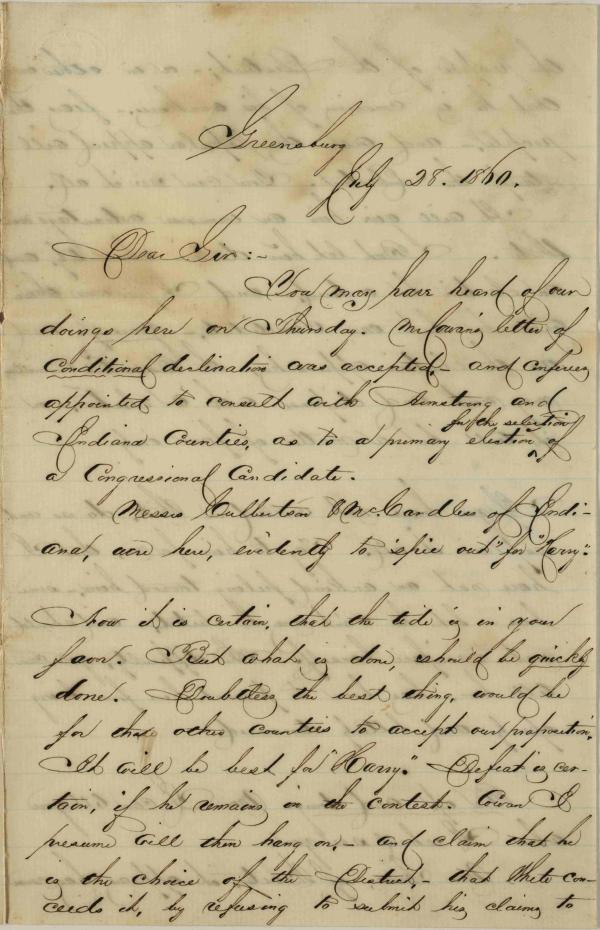 Greensburg
July 28. 1860.
Dear Sir:-
You may have heard of our
doings here on Thursday. Mr Cowan's letter of
Conditional declination was accepted - and conferees
appointed to consult with Armstrong and
for the selection
Indiana Counties, as to a primary election of
a Congressional Candidate.
Messrs Culbertson & McCandless of Indi-
ana, were here, evidently to "spie out" for "Harry".
Now it is certain, that the tide is in your
favor. But what is done, should be quickly
done. Doubtless the best thing, would be
for those other counties to accept our proposition.
It will be best for "Harry." Defeat is cer-
tain, if he remains in the contest. Cowan I
presume will then hang on, - and claim that he
is the choice of the District, - that White con-
ceeds it, by refusing to submit his claims to